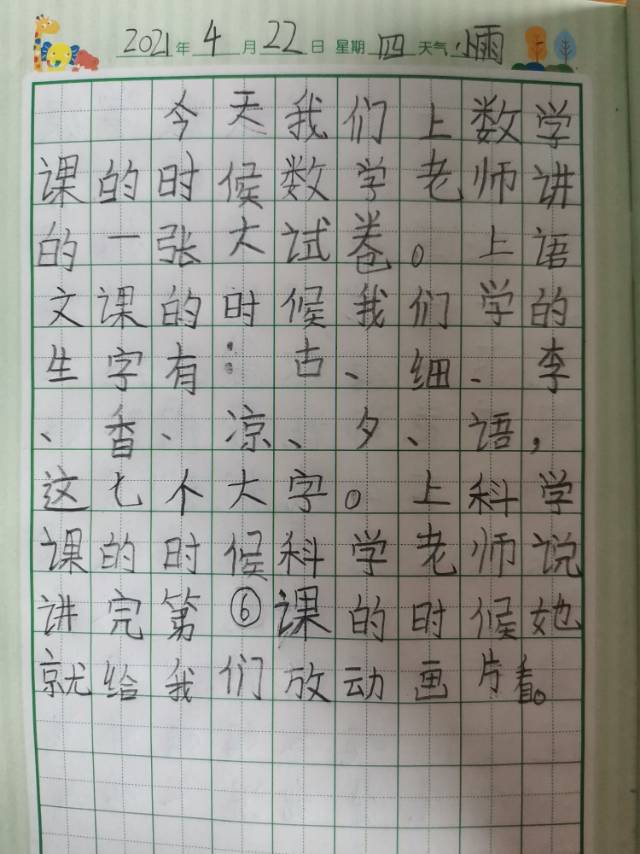 2021年4月22日 星期四 天气小雨
今天我们上数学
课的时候数学老师讲
的一张大试卷。上语
文课的时候我们学的
生字有：古、细、李
、香、凉、夕、语，
这七个大字。上科学
课的时候科学老师说
讲完第⑥课的时候她
就给我们放动画片看。